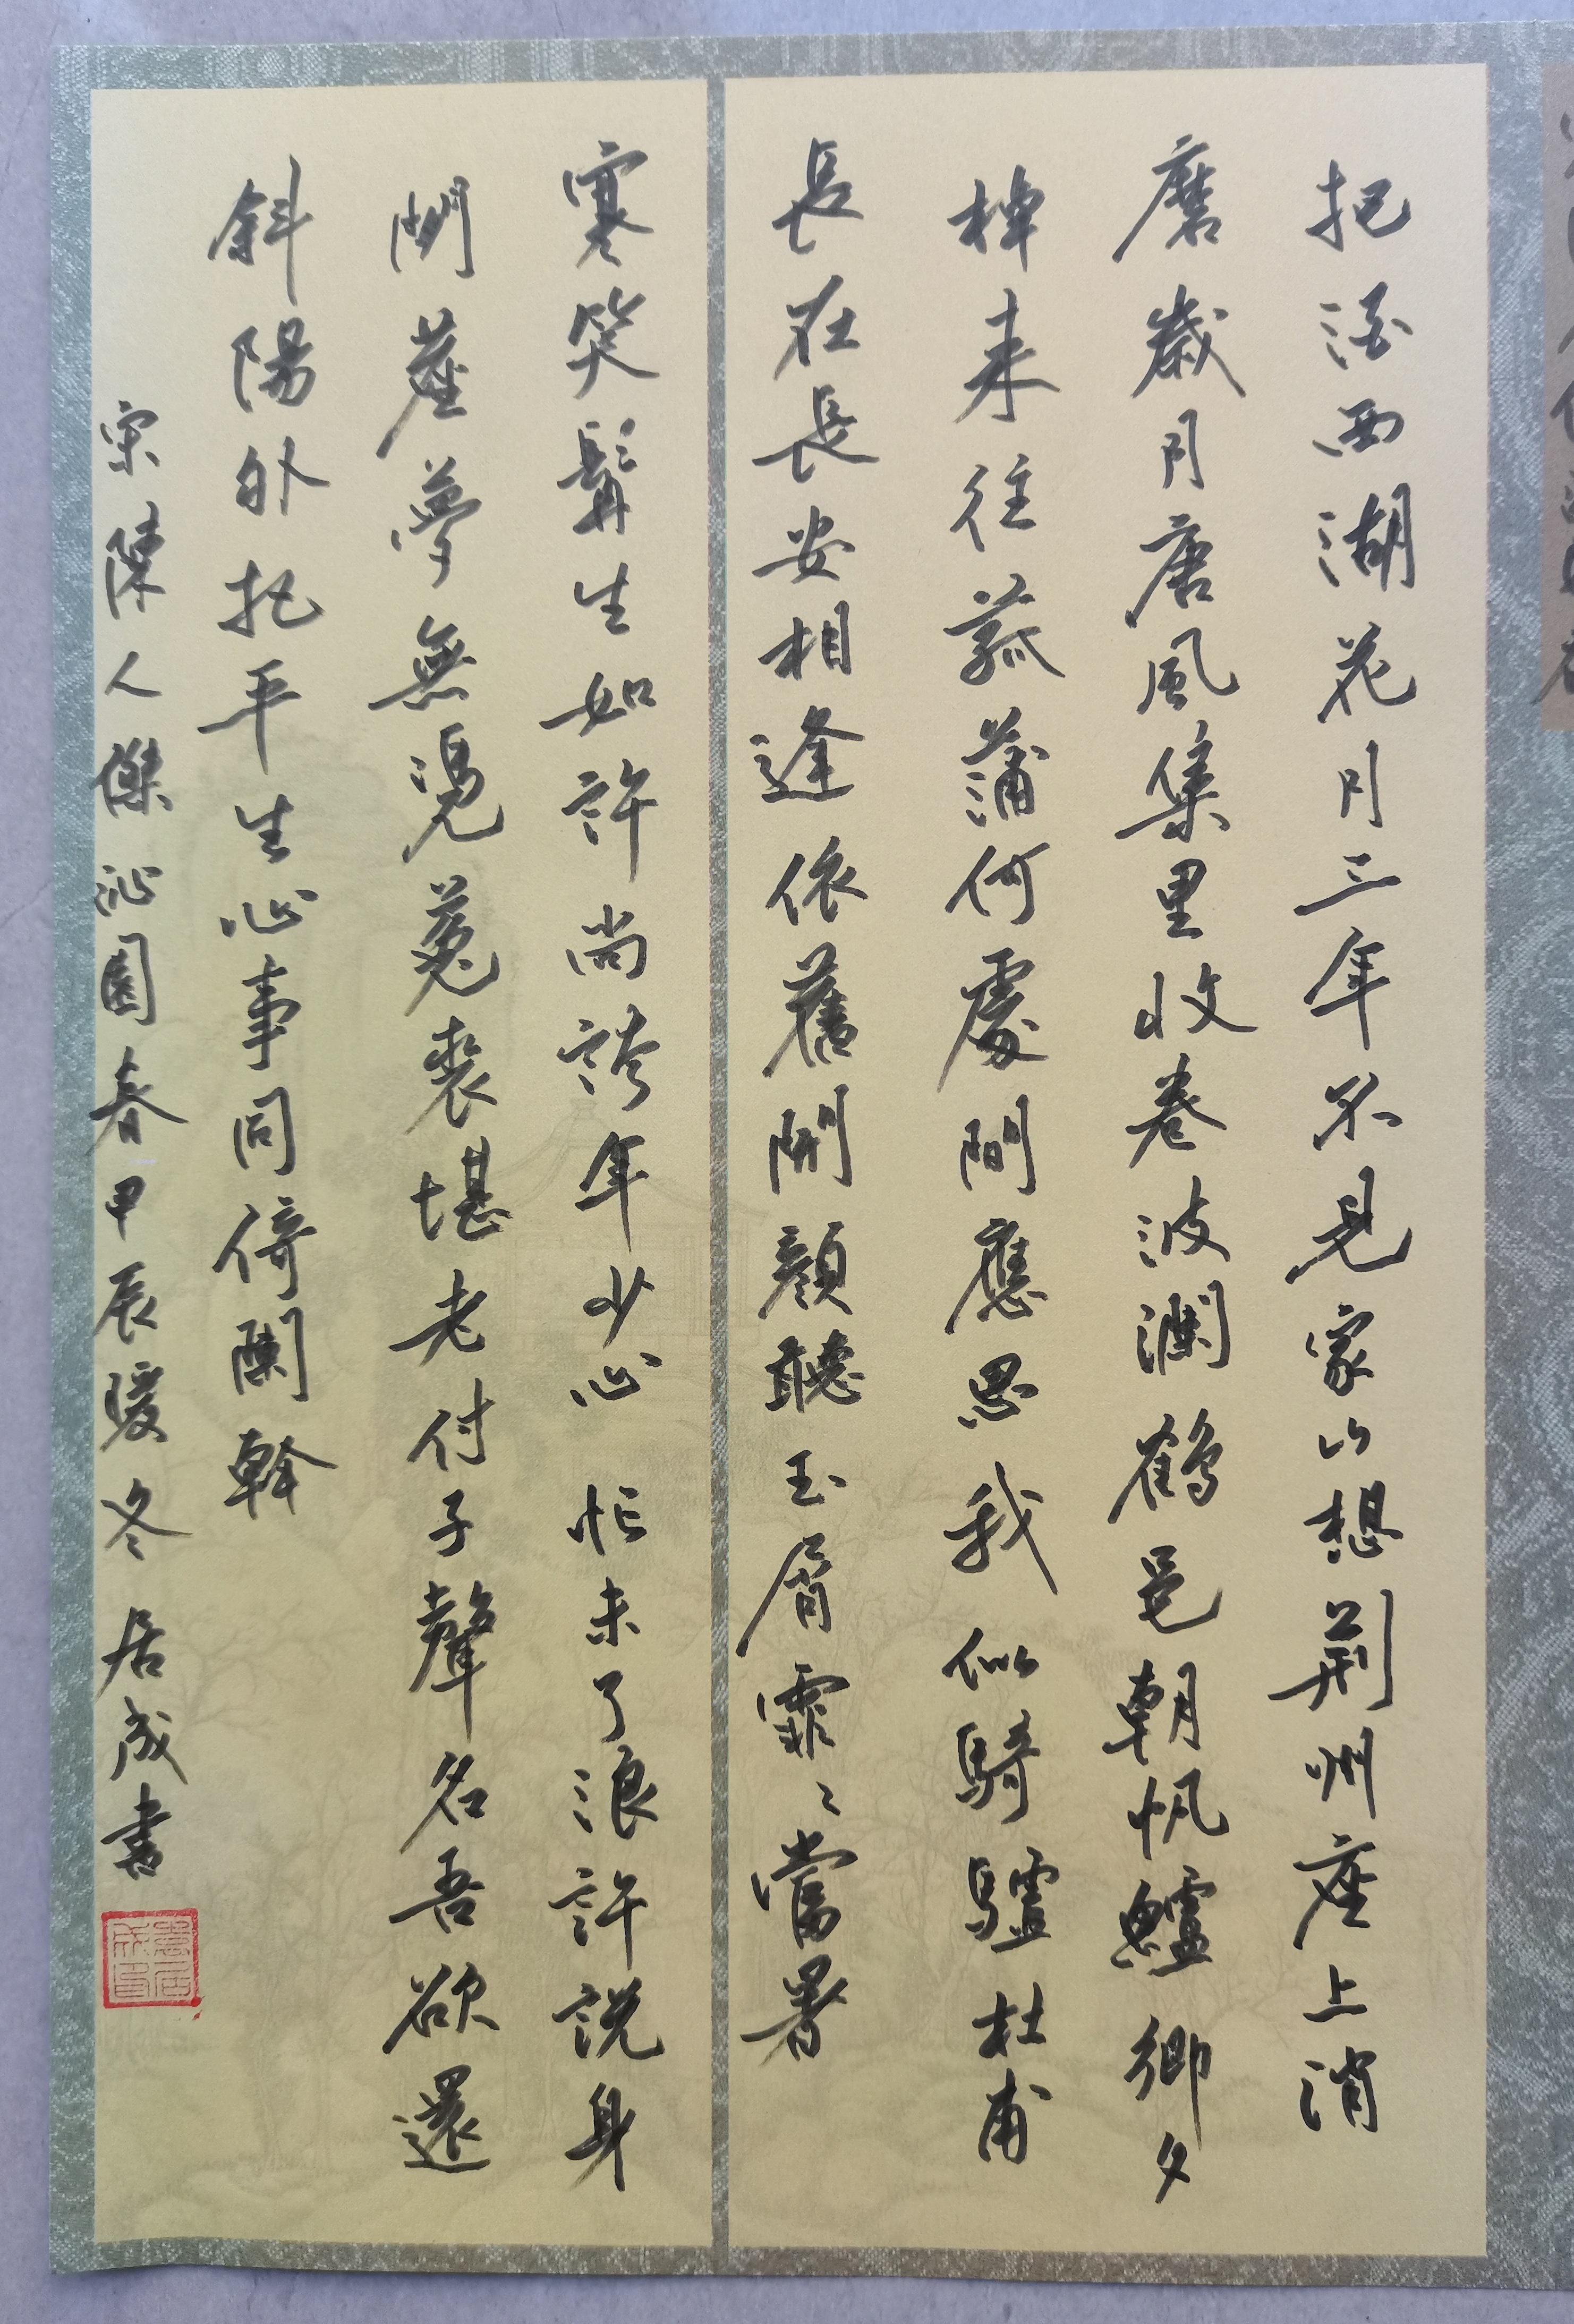 把酒西湖花月三年不見家山想荆州座上消
磨歲月唐風集里收卷波瀾鶴邑朝帆鱸鄉夕
棹来往菰蒲何處間應思我似騎驢杜甫
長在長安相逢依舊開顔聽玉屑霏〻當暑
寒笑鬢生如許尚誇年少心忙未了浪許説身
閒蓬夢無憑菟裘堪老付子聲名吾欲還
斜陽外把平生心事同倚闌幹
宋陳人傑沁園春甲辰暖冬居成書